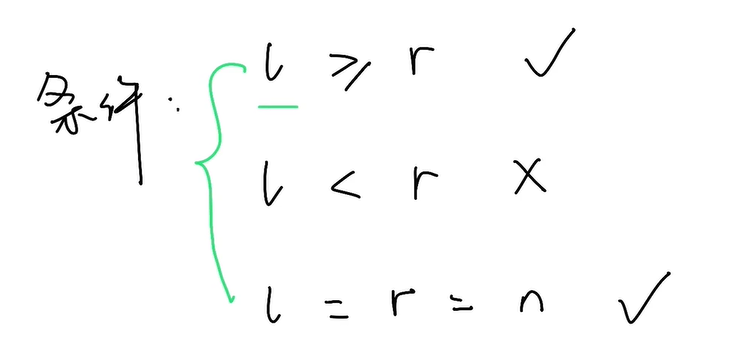 条件:
l ≥ r ✓
l < r ×
l = r = n ✓